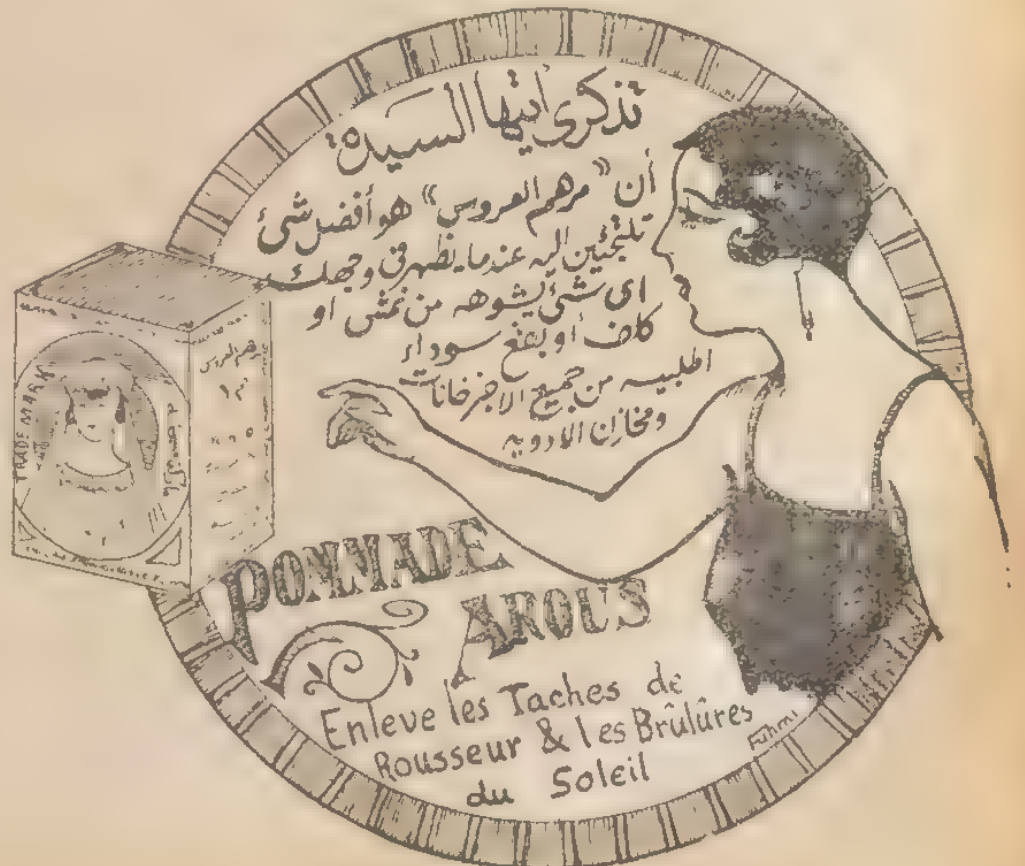 تذكرى أيتها السيدة
أن "مرهم العروس" هو أفضل شئ
تلتجئين اليه عندما يظهر في وجهك
اى شئ يشوهه من نمش او
كلف أو بقع سوداء
اطلبيه من جميع الاجزخانات
ومخازن الادويه
TRADE MARK
مرهم العروس
POMMADE
AROUS
Enleve les Taches de
Rousseur & les Brûlûres
du Soleil
Fahmi